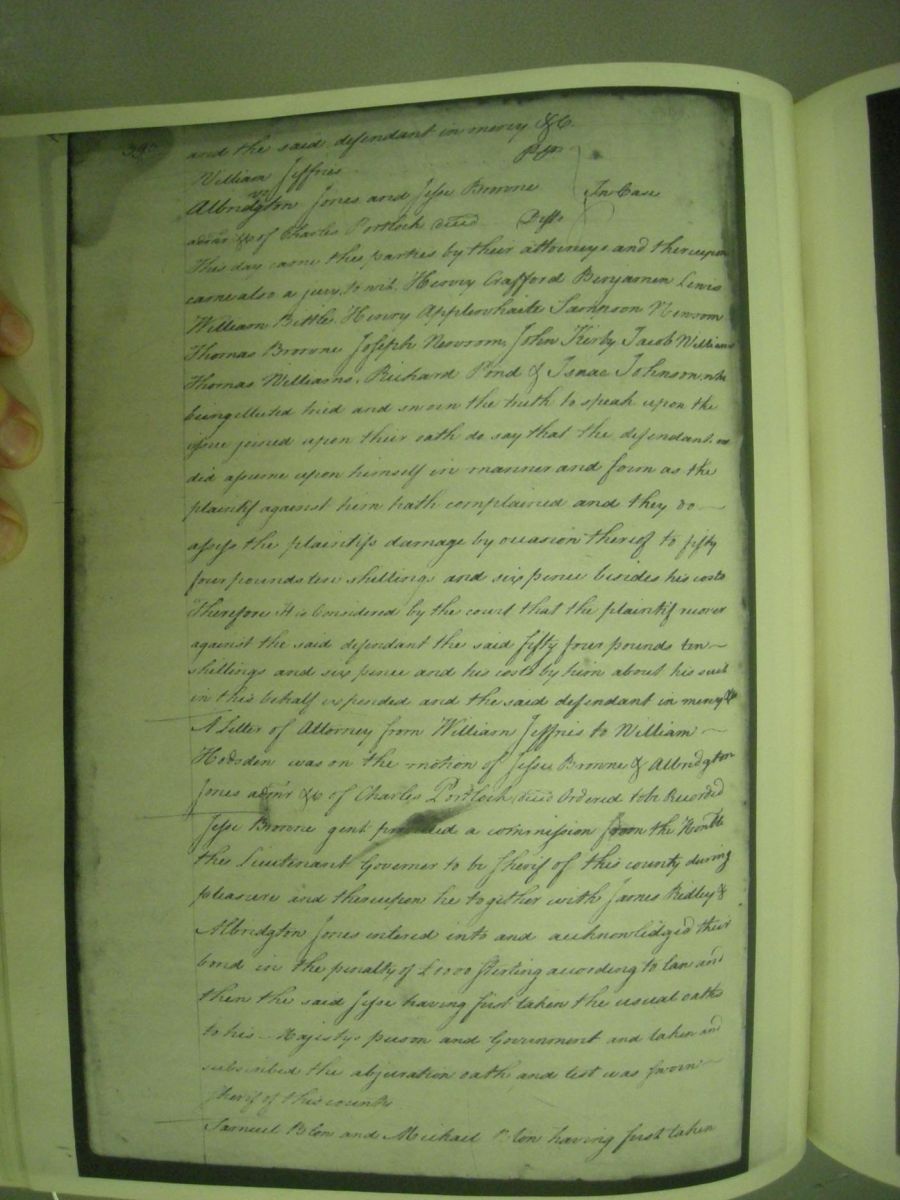 and the said defendant in mercy &C.
William Jeffries Pltf
vs
Albridgton Jones and Jesse Browne
In Case
admr &c of Charles Portlock deced Deft
This day came the parties by their attorneys and thereupon
came also a jury, to wit, Henry Crafford Benjamen Lewis
William Bittle, Henry Applewhaite Sampson Newsom
Thomas Browne Joseph Newsom, John Kirby, Jacob Williams
Thomas Williams, Richard Pond & Isaac Johnson, who
being elected tried and sworn the truth to speak upon the
issue joined upon their oath do say that the defendant
did assume upon himself in manner and form as the
plaintif against him hath complained and they do
assess the plaintifs damage by occasion thereof to fifty
four pounds ten shillings and six pence besides his costs
Therefore it is Considered by the court that the plaintif recover
against the said defendant the said fifty four pounds ten
shillings and six pence and his costs by him about his suit
in this behalf expended and the said defendant in mercy &c
A Letter of Attorney from William Jeffries to William
Hodsden was on the motion of Jesse Browne & Albridgton
Jones admr &c of Charles Portlock deced Ordered to be Recorded
Jesse Browne gent produced a commission from the Honble
the Lieutenant Governer to be sherif of this county during
pleasure and thereupon he together with James Ridley &
Albridgton Jones entered into and acknowledged their
bond in the penalty of £1000 Sterling according to law and
then the said Jesse having first taken the usual oaths
to his Majestys person and Government and taken and
subscribed the abjuration oath and test was sworn
sherif of this county
Samuel Blon and Michael Blon having first taken